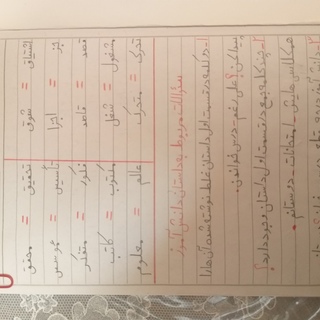 اشتیاق = شوق تحقیق = محقق
جز = اجزا تأسیس = موسس
قصد = قاصد فکور = متفکر
مشغول = شغل مکتوب = کاتب
تحرک = متحرک عالم = معلوم
سؤالات مربوط به داستان دانش آموز
۱- دو کلمه در قسمت اول داستان غلط نوشته شده آن ها را
پیدا کن؟ علی رغم - درس خواندن.
۲- چند کلمه جمع در قسمت اول داستان وجود دارد؟
همکلاسی هایش - امتحانات - دوستانم.